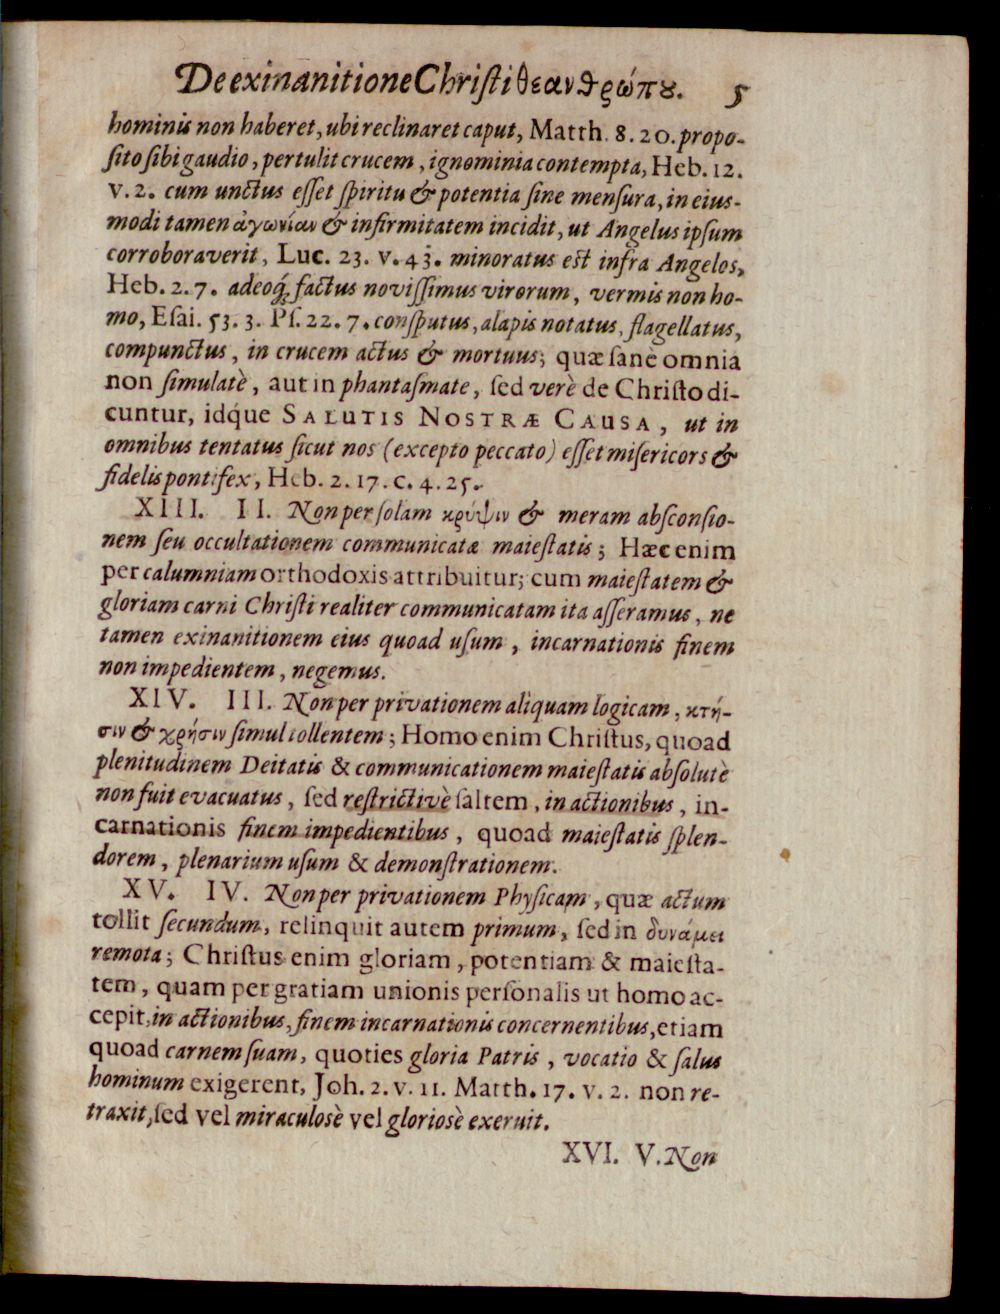 De exinanitione Christi θεανθρώπȣ. 5
hominis non haberet, ubi reclinaret caput, Matth. 8. 20. propo-
ſito ſibi gaudio, pertulit crucem, ignominia contempta, Heb. 12.
v. 2. cum unctus eſſet ſpiritu & potentia ſine menſura, in eius-
modi tamen ἀγωνίαν & infirmitatem incidit, ut Angelus ipſum
corroboraverit, Luc. 23. v. 43. minoratus est infra Angelos,
Heb. 2. 7. adeoq́; factus noviſſimus virorum, vermis non ho-
mo, Eſai. 53. 3. Pſ. 22. 7. conſputus, alapis notatus, flagellatus,
compunctus, in crucem actus & mortuus; quæ ſanè omnia
non ſimulatè, aut in phantaſmate, ſed verè de Chriſto di-
cuntur, idq́ue SALUTIS NOSTRÆ CAUSA, ut in
omnibus tentatus ſicut nos (excepto peccato) eſſet miſericors &
fidelis pontifex, Heb. 2. 17. c. 4. 25.
XIII. II. Non per ſolam κρύψιν & meram abſconſio-
nem ſeu occultationem communicatæ maieſtatis; Hæc enim
per calumniam orthodoxis attribuitur; cum maieſtatem &
gloriam carni Chriſti realiter communicatam ita aſſeramus, ne
tamen exinanitionem eius quoad uſum, incarnationis finem
non impedientem, negemus.
XIV. III. Non per privationem aliquam logicam, κτή-
σιν & χρήσιν ſimul tollentem; Homo enim Chriſtus, quoad
plenitudinem Deitatis & communicationem maieſtatis abſolutè
non fuit evacuatus, ſed reſtrictivè ſaltem, in actionibus, in-
carnationis finem impedientibus, quoad maieſtatis ſplen-
dorem, plenarium uſum & demonſtrationem.
XV. IV. Non per privationem Phyſicam, quæ actum
tollit ſecundum, relinquit autem primum, ſed in δυνάμει
remota; Chriſtus enim gloriam, potentiam & maieſta-
tem, quam per gratiam unionis perſonalis ut homo ac-
cepit, in actionibus, finem incarnationis concernentibus, etiam
quoad carnem ſuam, quoties gloria Patris, vocatio & ſalus
hominum exigerent, Joh. 2. v. 11. Matth. 17. v. 2. non re-
traxit, ſed vel miraculosè vel glorioſè exeruit.
XVI. V. Non